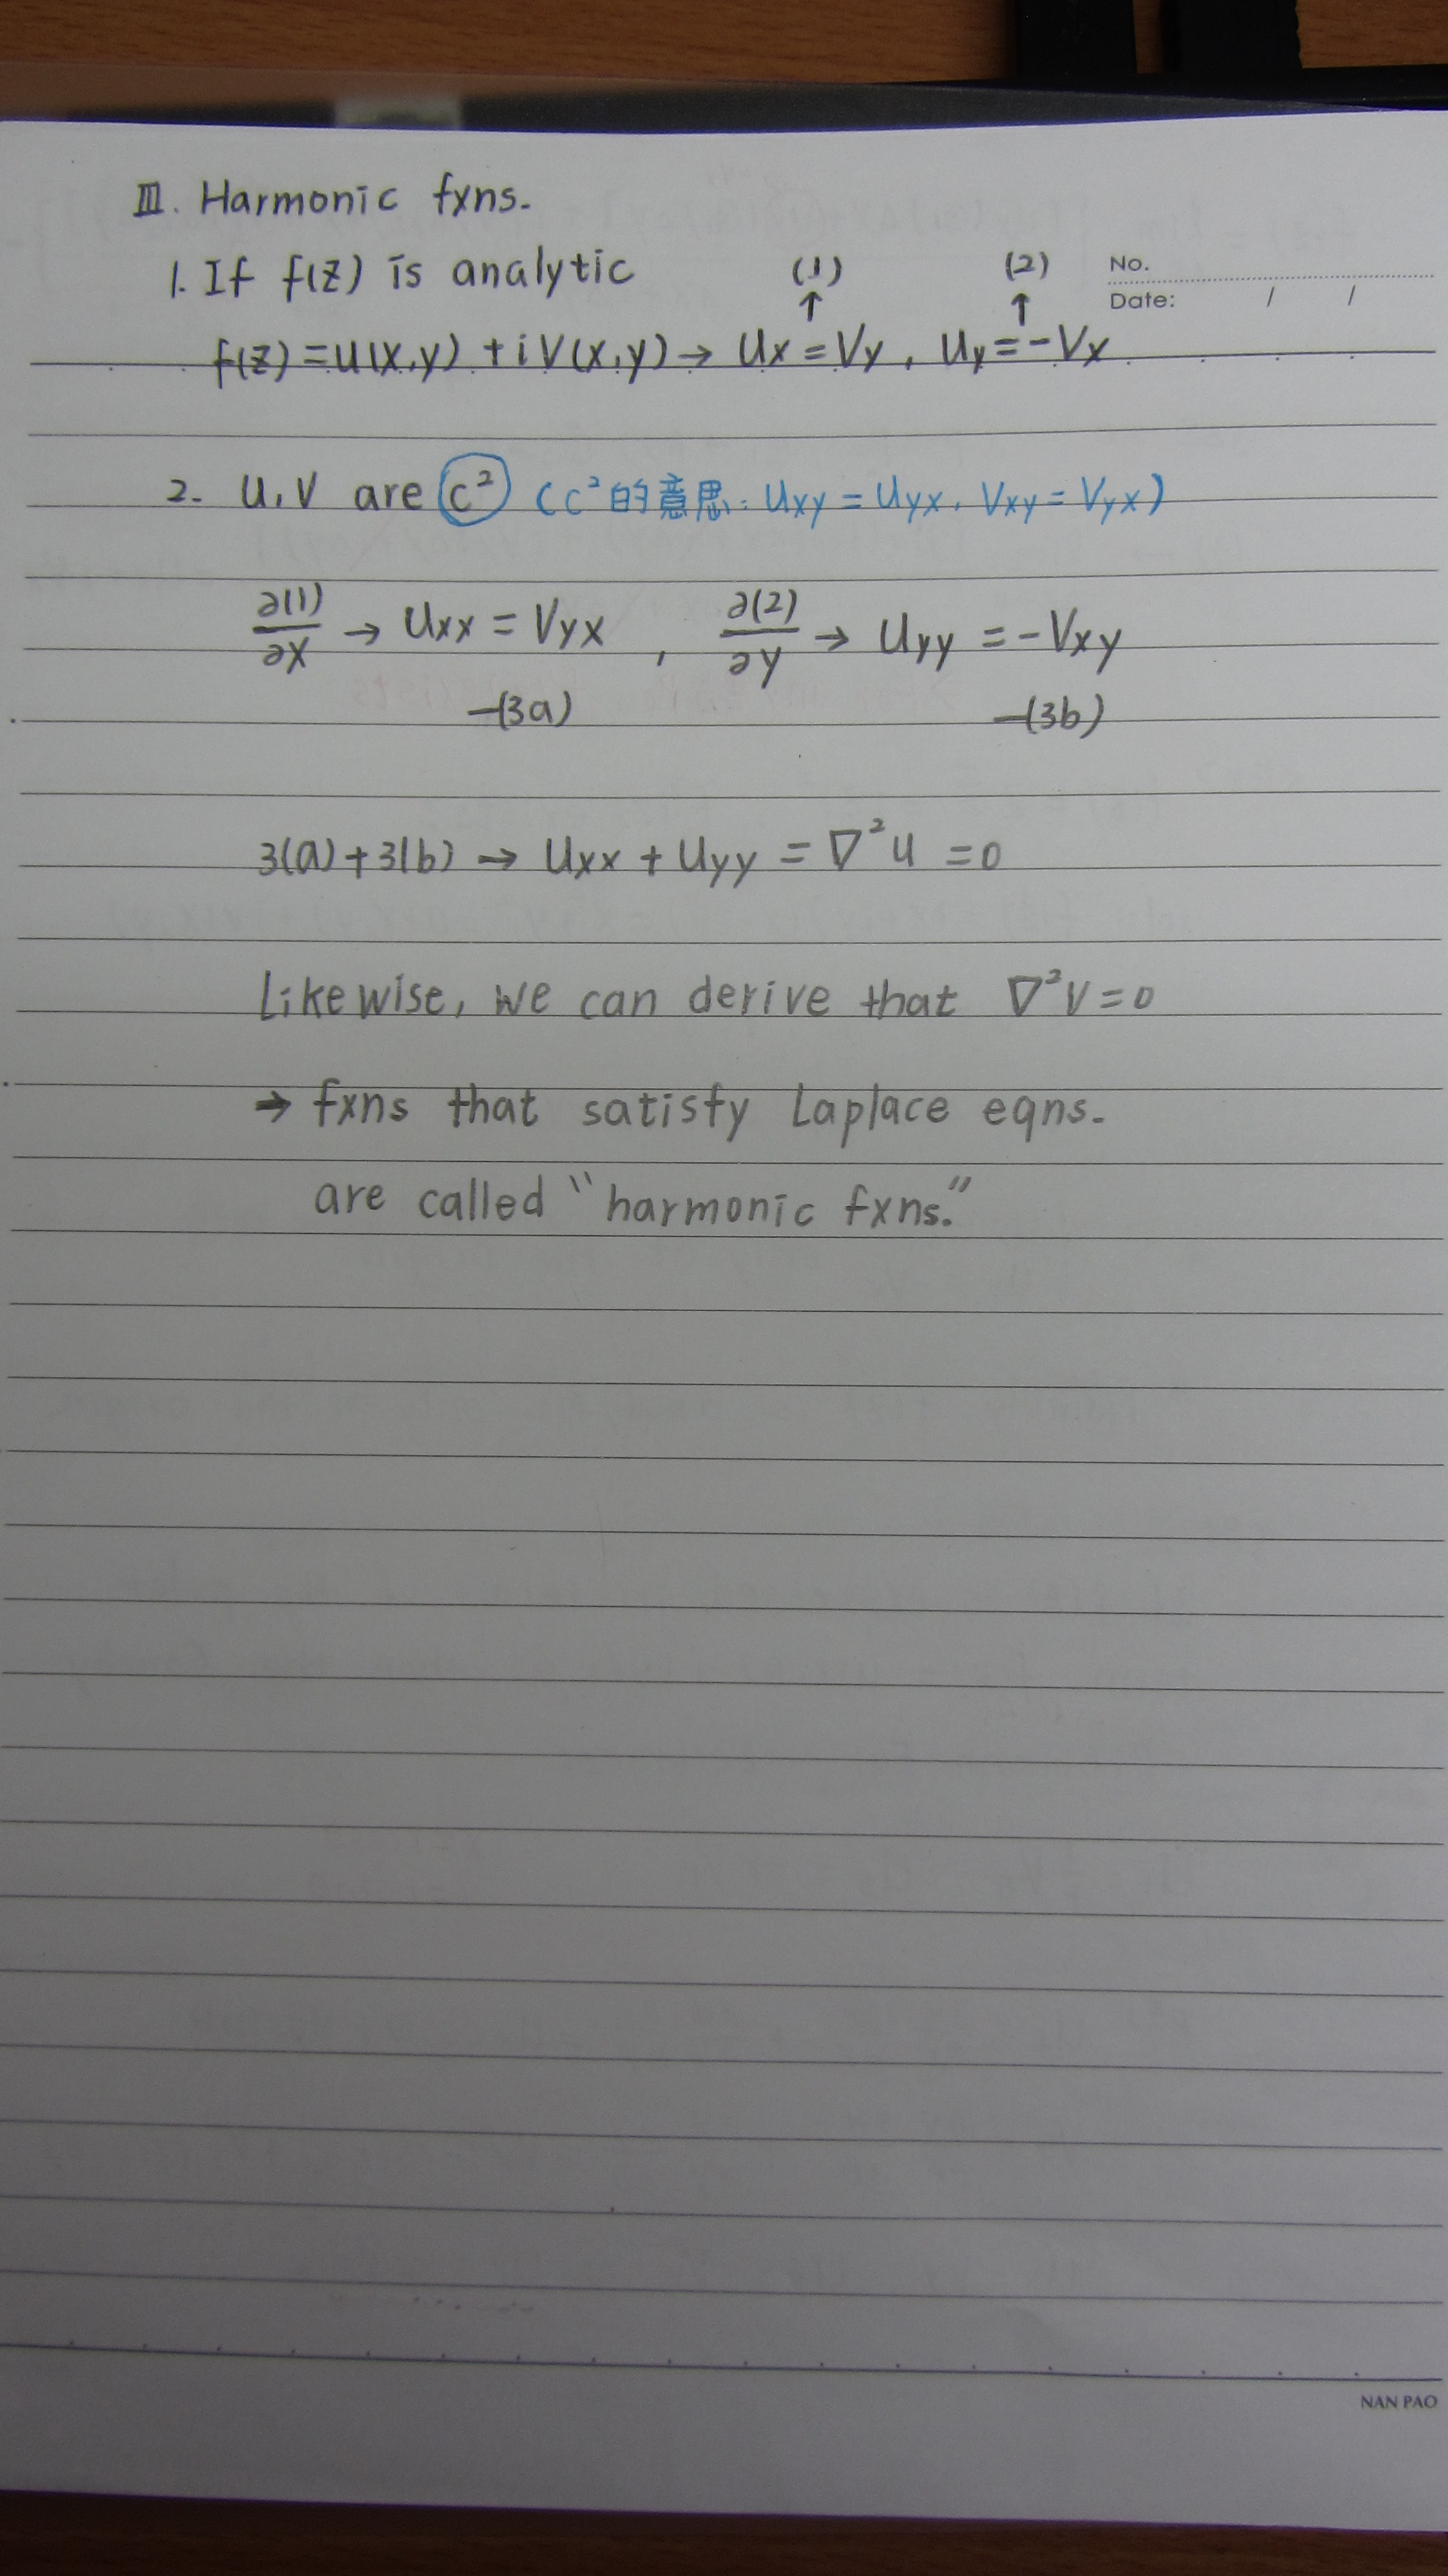 Ⅲ. Harmonic fxns.
1. If f(z) is analytic (1) (2)
↑ ↑
No.
Date: / /
f(z) = u(x,y) + i v(x,y) → ux = vy , uy = -vx
2. u, v are c² (c²的意思: uxy = uyx, vxy = vyx)
∂(1)/∂x → uxx = vyx , ∂(2)/∂y → uyy = -vxy
—(3a) —(3b)
3(a)+3(b) → uxx + uyy = ∇²u = 0
Likewise, we can derive that ∇²v = 0
→ fxns that satisfy Laplace eqns.
are called "harmonic fxns."
NAN PAO